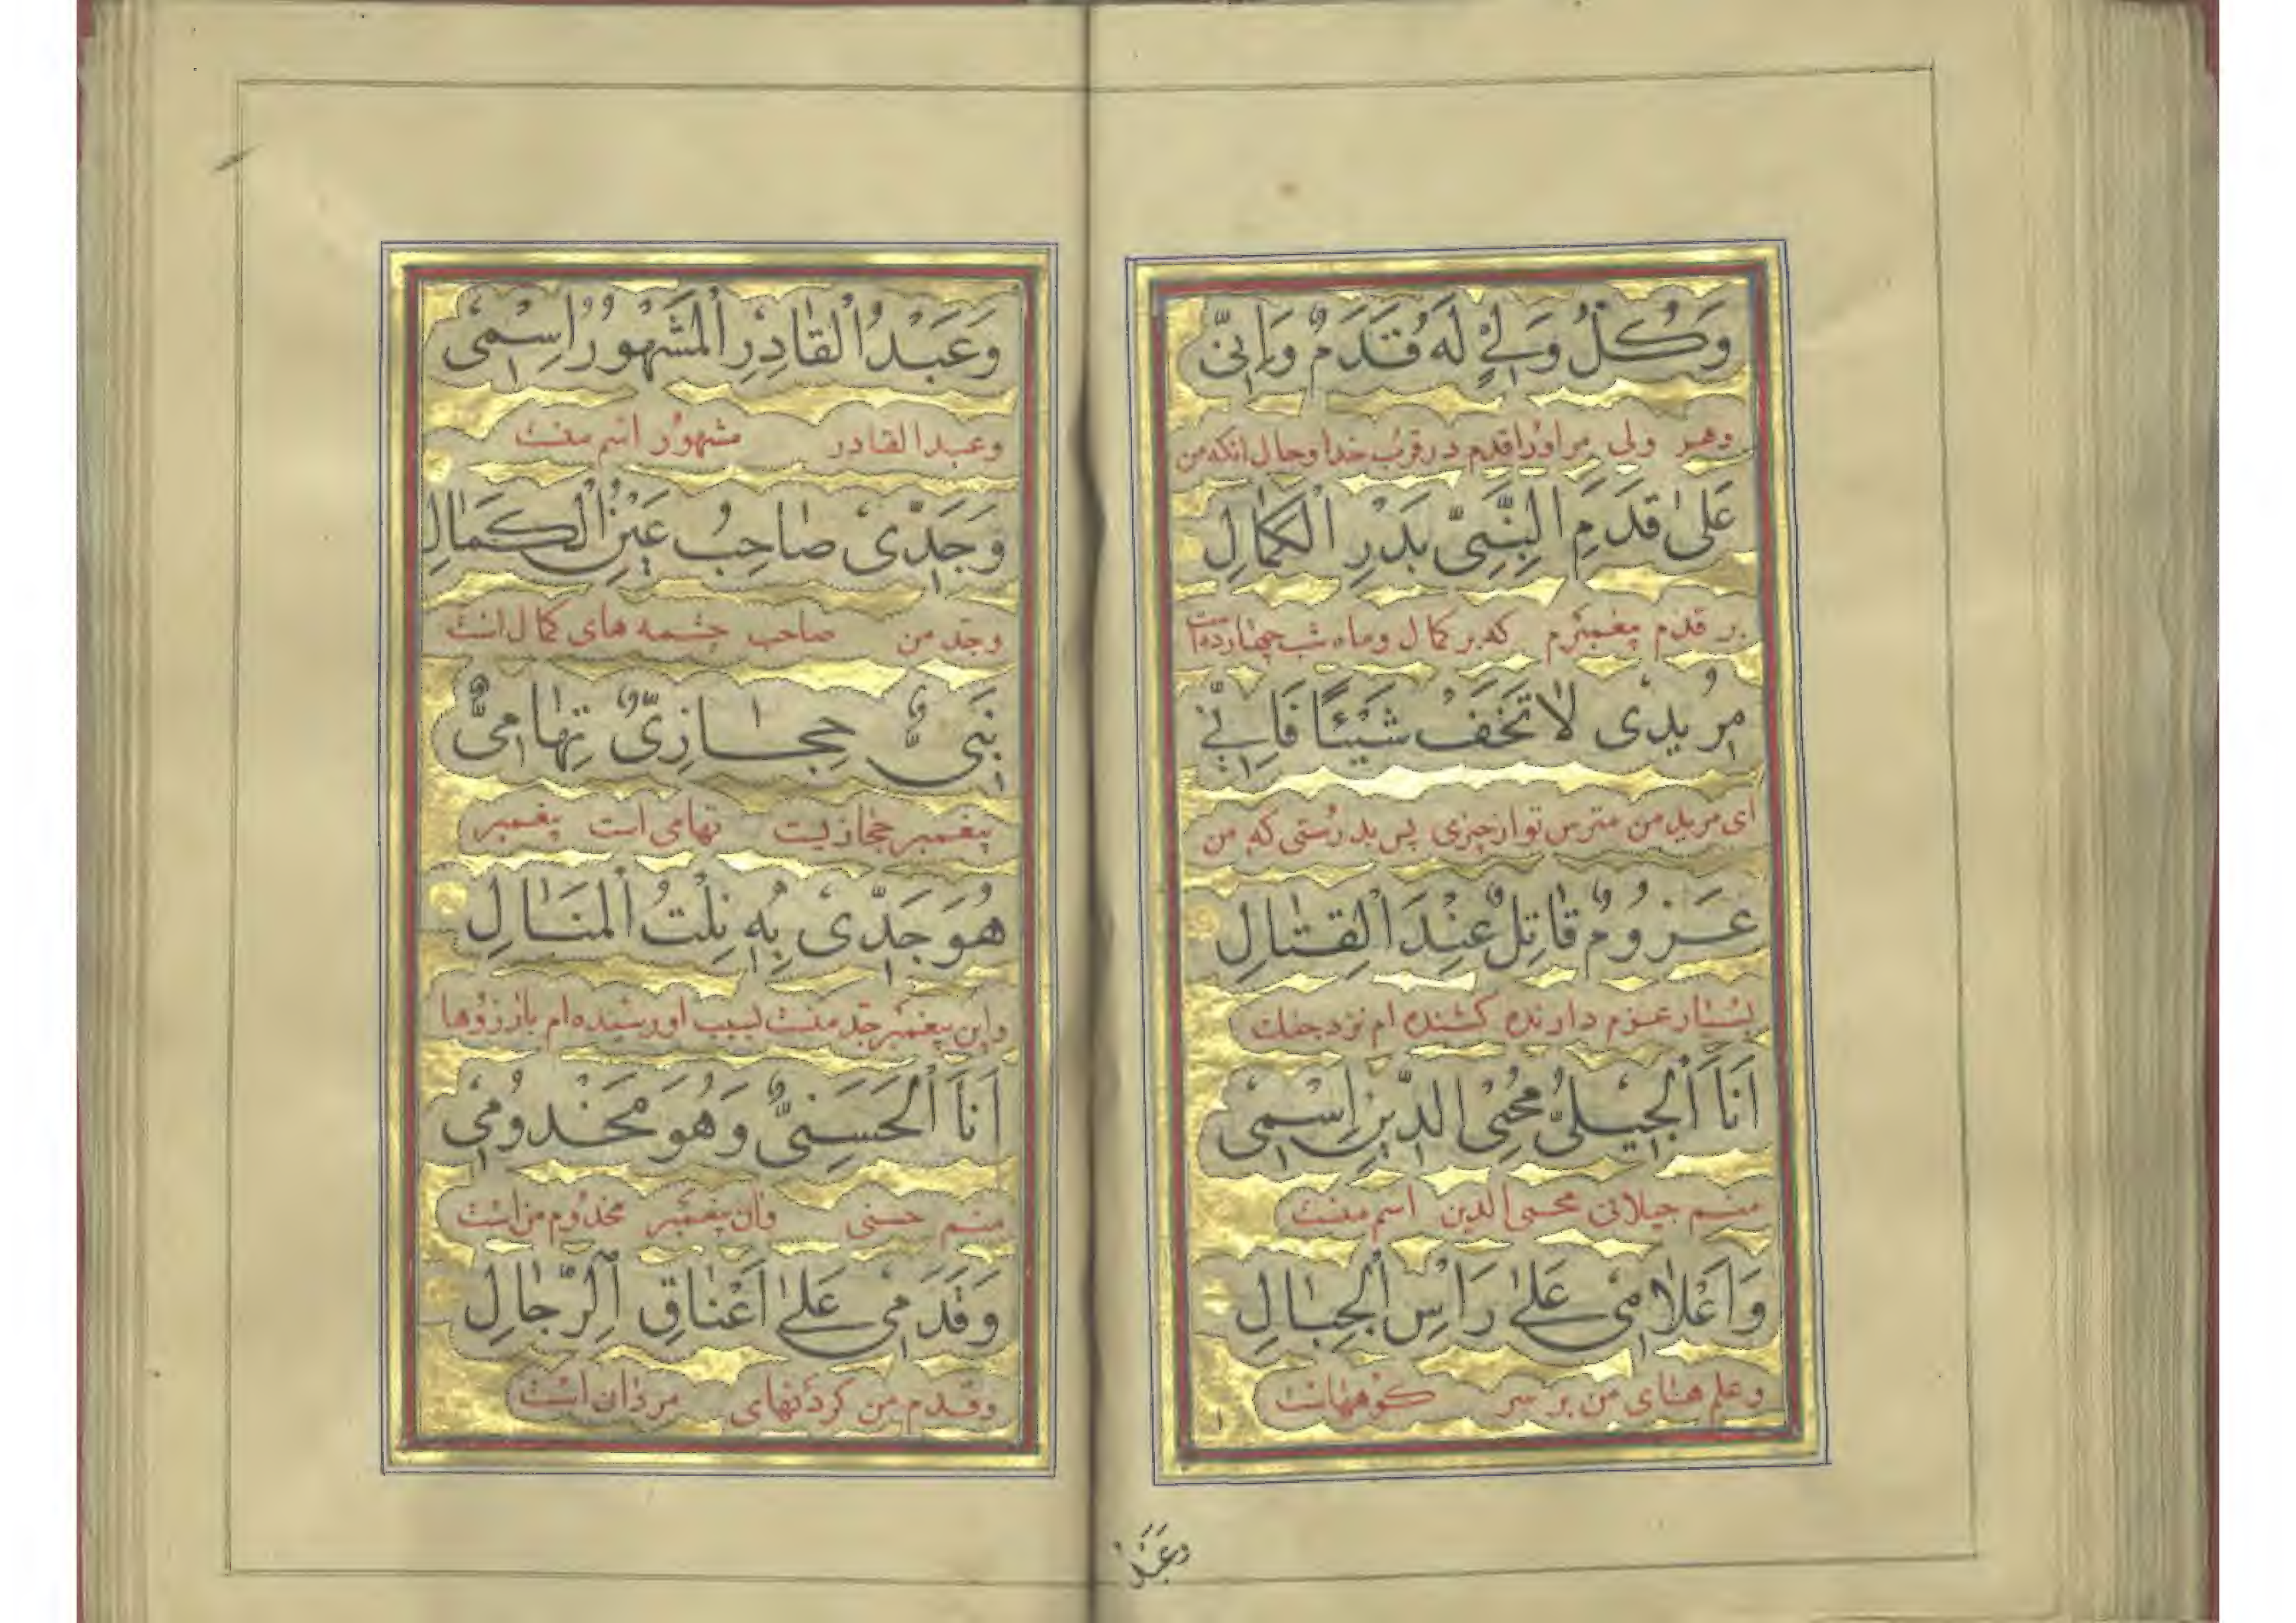 وَكُلُّ وَلِيٍّ لَهُ قَدَمٌ وَاِنِّي
وهر ولی مر اورا قدم در قرب خدا و حال انکه من
عَلىٰ قَدَمِ النَّبِيِّ بَدْرِ الْكَمَالِ
بر قدم پیغمبرم که بر کمال و ماه شب چهارده است
مُرِيدِى لَا تَخَفْ شَيْئًا فَاِنِّي
ای مرید من مترس تو از چیزی پس بدرستی که من
عَزُومٌ قَاتِلٌ عِنْدَ الْقِتَالِ
بسیار عزم دارنده کشنده ام نزد جنك
اَنَا الْجِيلِيُّ مُحْيُ الدِّينِ اِسْمِى
منم جیلانی محیی الدین اسم منست
وَاَعْلَامِى عَلىٰ رَاْسِ الْجِبَالِ
وعلم های من بر سر کوههاست
وَعَبْدُ
وَعَبْدُ الْقَادِرِ الْمَشْهُورُ اِسْمِى
وعبد القادر مشهور اسم منست
وَجَدِّى صَاحِبُ عَيْنِ الْكَمَالِ
وجد من صاحب چشمه های کمال است
نَبِىٌّ حِجَازِىٌّ تِهَامِىٌّ
پیغمبر حجازیست تهامی است پیغمبر
هُوَ جَدِّى بِهِ نِلْتُ الْمَنَالِ
واین پیغمبر جد منست بسبب او رسیده ام بارزوها
اَنَا الْحَسَنِىُّ وَهُوَ مَخْدُومِى
منم حسنی وان پیغمبر مخدوم من است
وَقَدَمِى عَلىٰ اَعْنَاقِ الرِّجَالِ
وقدم من کردنهای مردان است